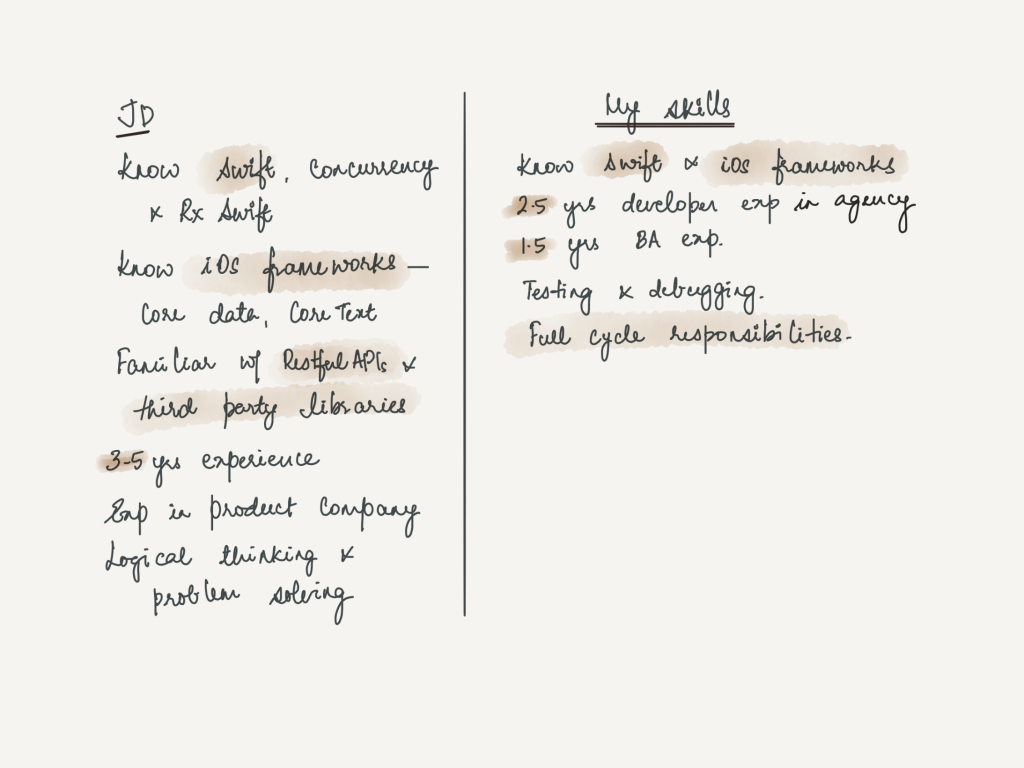 JD
Know Swift, Concurrency
& Rx Swift
Know iOS frameworks —
Core data, Core Text
Familiar w/ Restful APIs &
third party libraries
3-5 yrs experience
Exp in product company
Logical thinking &
problem solving
My skills
Know Swift & iOS frameworks
2.5 yrs developer exp in agency
1.5 yrs BA exp.
Testing & debugging.
Full cycle responsibilities.